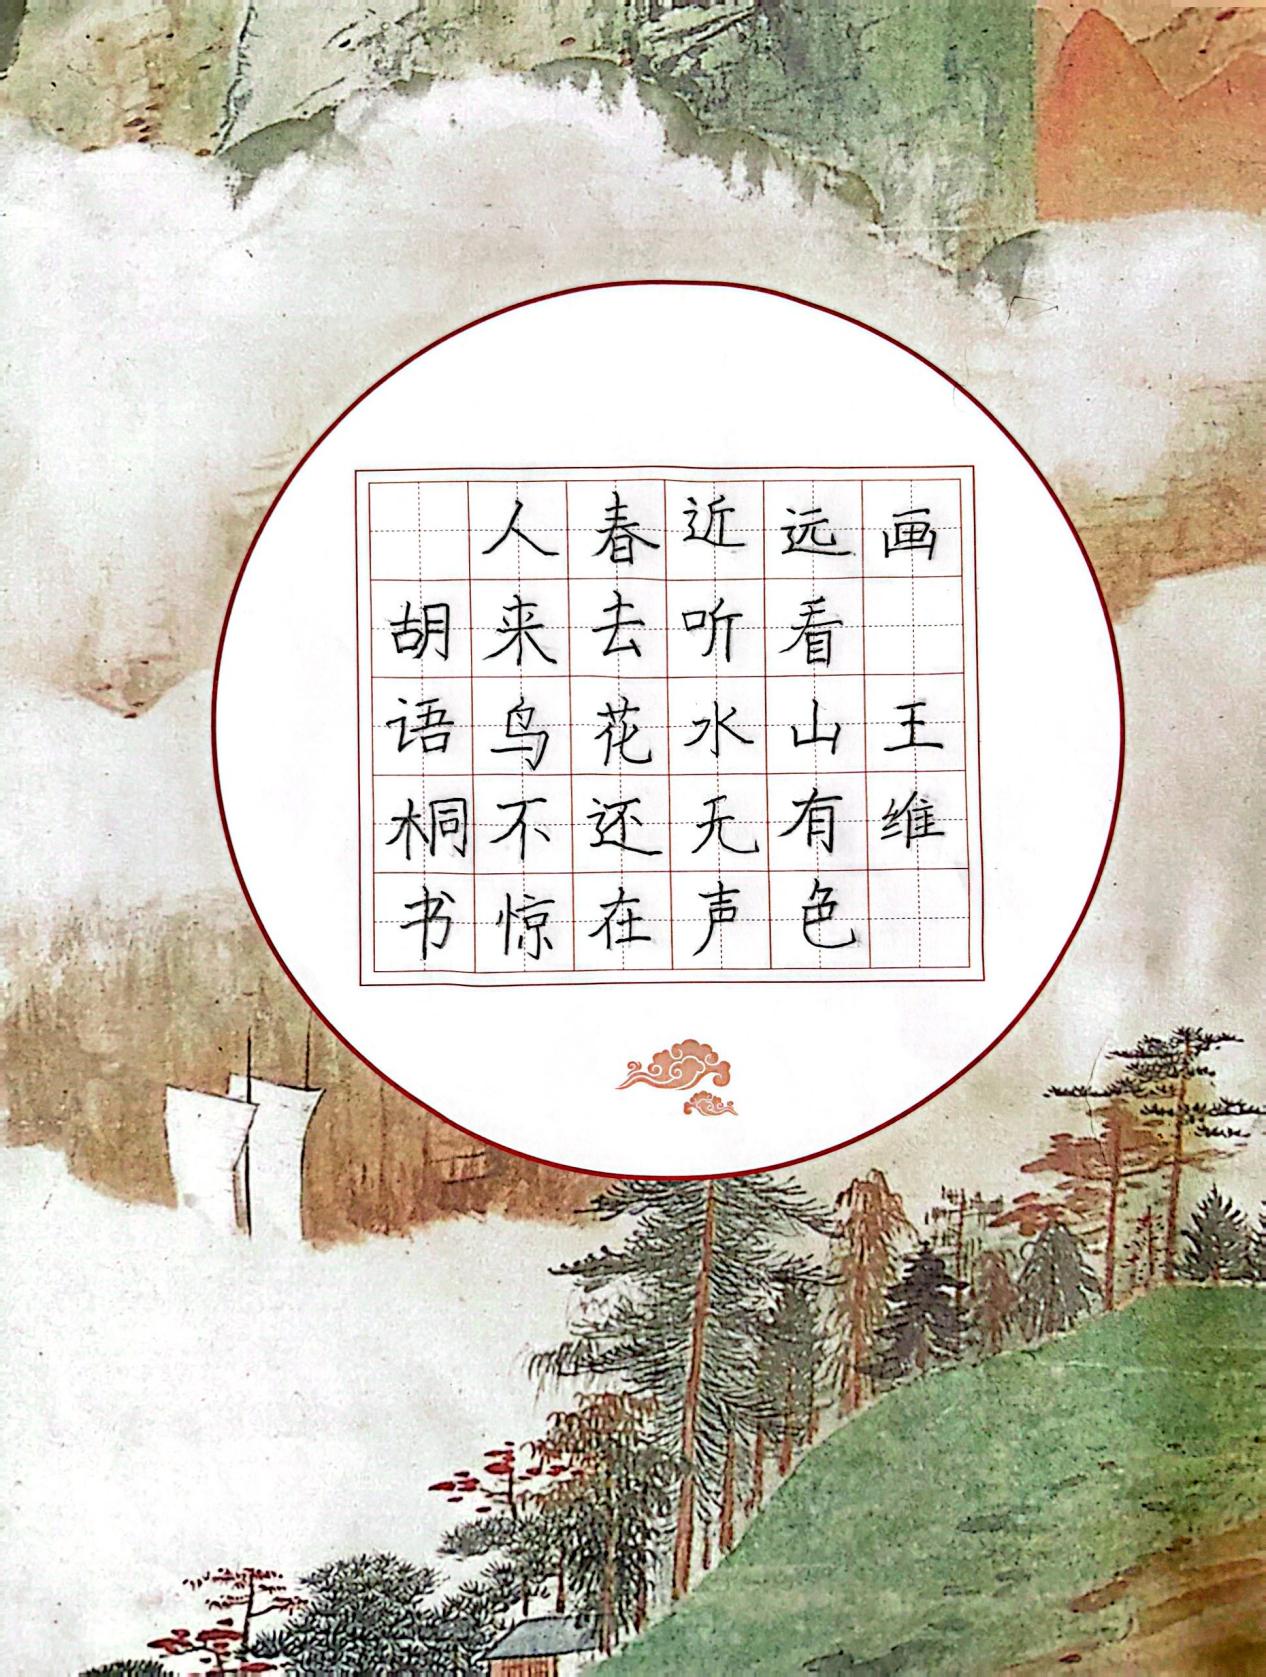 画 王维
远看山有色
近听水无声
春去花还在
人来鸟不惊
胡语桐书